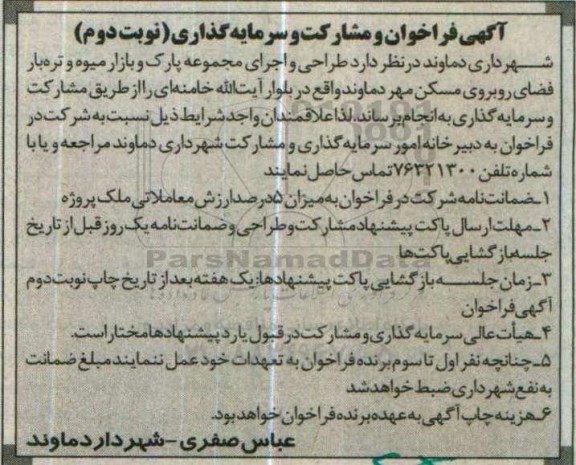 آگهی فراخوان و مشارکت و سرمایه گذاری (نوبت دوم)
شهرداری دماوند در نظر دارد طراحی و اجرای مجموعه پارک و بازار میوه و تره بار
فضای روبروی مسکن مهر دماوند واقع در بلوار آیت الله خامنه ای را از طریق مشارکت
و سرمایه گذاری به انجام برساند. لذا علاقمندان واجد شرایط ذیل نسبت به شرکت در
فراخوان به دبیرخانه امور سرمایه گذاری و مشارکت شهرداری دماوند مراجعه و یا با
شماره تلفن ۷۶۳۲۱۳۰۰ تماس حاصل نمایند
۱ـ ضمانت نامه شرکت در فراخوان به میزان ۵ درصد ارزش معاملاتی ملک پروژه
۲ـ مهلت ارسال پاکت پیشنهاد مشارکت و طراحی و ضمانت نامه یک روز قبل از تاریخ
جلسه بازگشایی پاکت ها
ParsNamadData
۳ـ زمان جلسه بازگشایی پاکت پیشنهادها: یک هفته بعد از تاریخ چاپ نوبت دوم
آگهی فراخوان
۴ـ هیأت عالی سرمایه گذاری و مشارکت در قبول یا رد پیشنهادها مختار است.
۵ـ چنانچه نفر اول تا سوم برنده فراخوان به تعهدات خود عمل ننمایند مبلغ ضمانت
به نفع شهرداری ضبط خواهد شد
۶ـ هزینه چاپ آگهی به عهده برنده فراخوان خواهد بود.
عباس صفری - شهردار دماوند